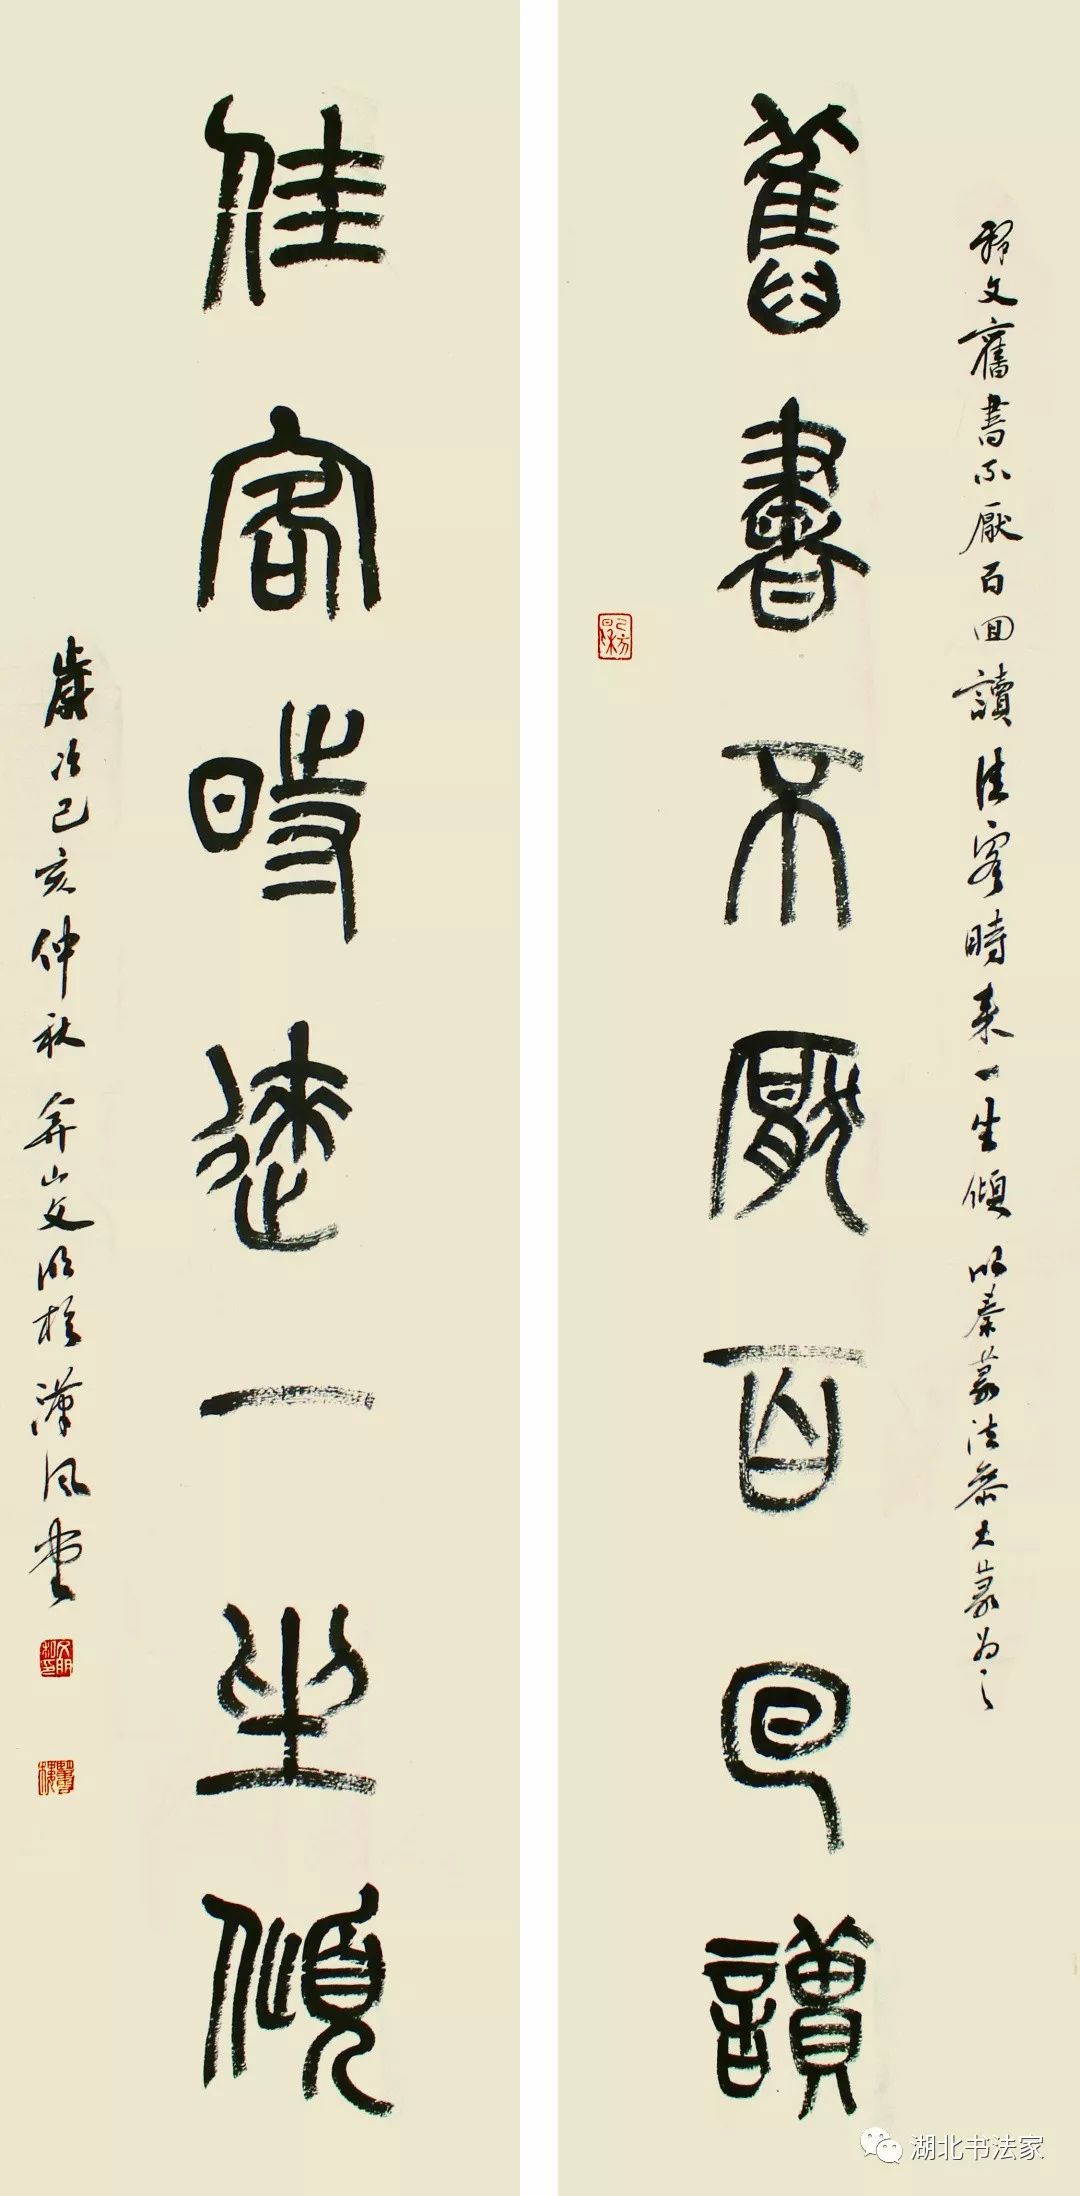 釋文舊書不厭百回讀佳客時來一坐傾 以秦篆法參大篆為之
舊書不厭百回讀
佳客時來一坐傾
歲次己亥仲秋弇山文明於漢風堂
湖北书法家